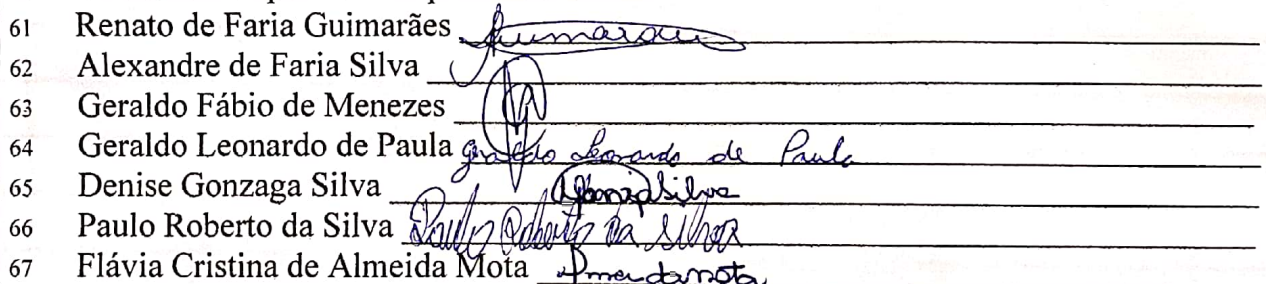 61 Renato de Faria Guimarães Guimarães
62 Alexandre de Faria Silva
63 Geraldo Fábio de Menezes
64 Geraldo Leonardo de Paula Geraldo Leonardo de Paula
65 Denise Gonzaga Silva
66 Paulo Roberto da Silva Paulo Roberto da Silva
67 Flávia Cristina de Almeida Mota